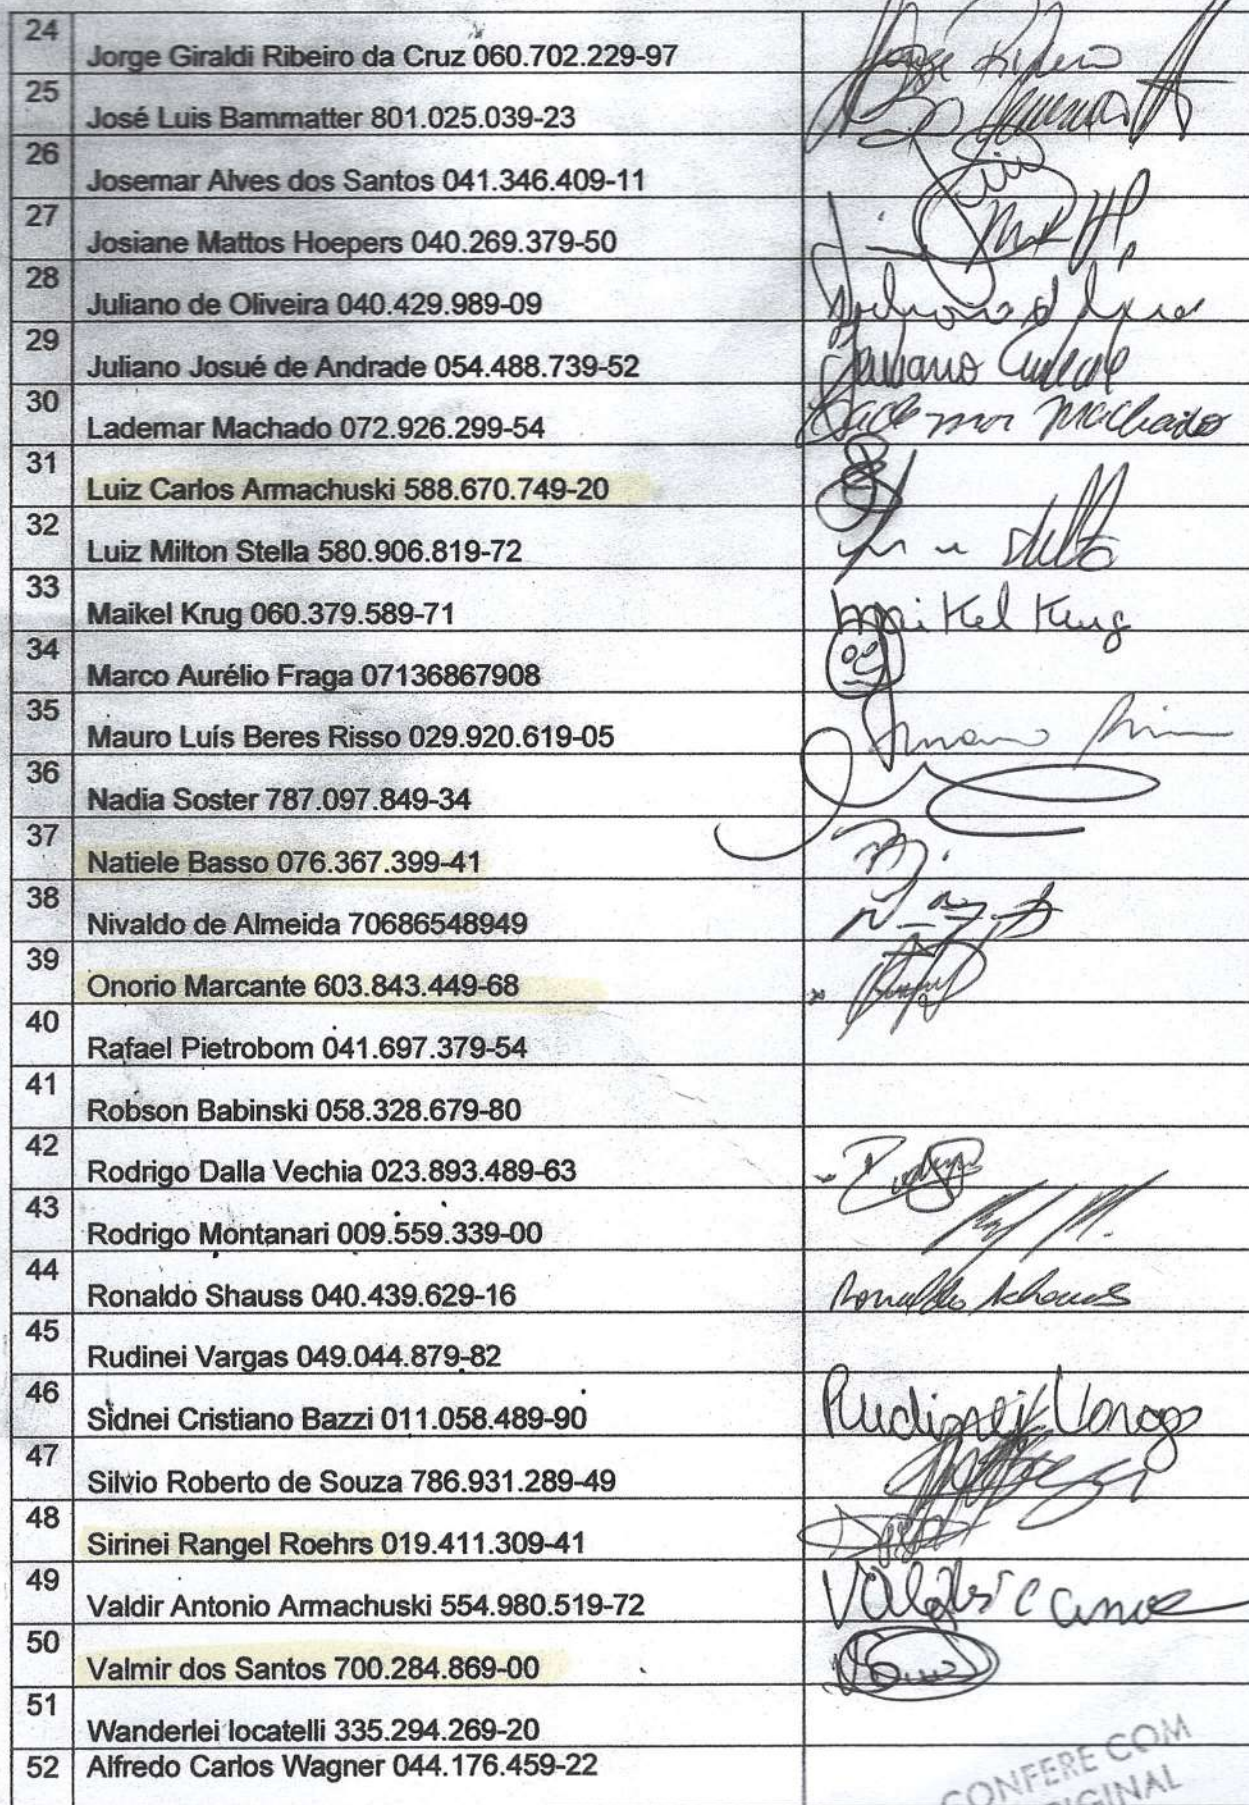 24
Jorge Giraldi Ribeiro da Cruz 060.702.229-97
Jorge Ribeiro
25
José Luis Bammatter 801.025.039-23
26
Josemar Alves dos Santos 041.346.409-11
27
Josiane Mattos Hoepers 040.269.379-50
28
Juliano de Oliveira 040.429.989-09
29
Juliano Josué de Andrade 054.488.739-52
Juliano Andrade
30
Lademar Machado 072.926.299-54
Lademar Machado
31
Luiz Carlos Armachuski 588.670.749-20
32
Luiz Milton Stella 580.906.819-72
Stella
33
Maikel Krug 060.379.589-71
Maikel Krug
34
Marco Aurélio Fraga 07136867908
35
Mauro Luís Beres Risso 029.920.619-05
36
Nadia Soster 787.097.849-34
37
Natiele Basso 076.367.399-41
38
Nivaldo de Almeida 70686548949
39
Onorio Marcante 603.843.449-68
40
Rafael Pietrobom 041.697.379-54
41
Robson Babinski 058.328.679-80
42
Rodrigo Dalla Vechia 023.893.489-63
43
Rodrigo Montanari 009.559.339-00
44
Ronaldo Shauss 040.439.629-16
Ronaldo Schauss
45
Rudinei Vargas 049.044.879-82
46
Sidnei Cristiano Bazzi 011.058.489-90
Rudinei Vargas
47
Silvio Roberto de Souza 786.931.289-49
48
Sirinei Rangel Roehrs 019.411.309-41
49
Valdir Antonio Armachuski 554.980.519-72
50
Valmir dos Santos 700.284.869-00
51
Wanderlei locatelli 335.294.269-20
52 Alfredo Carlos Wagner 044.176.459-22
CONFERE COM
ORIGINAL